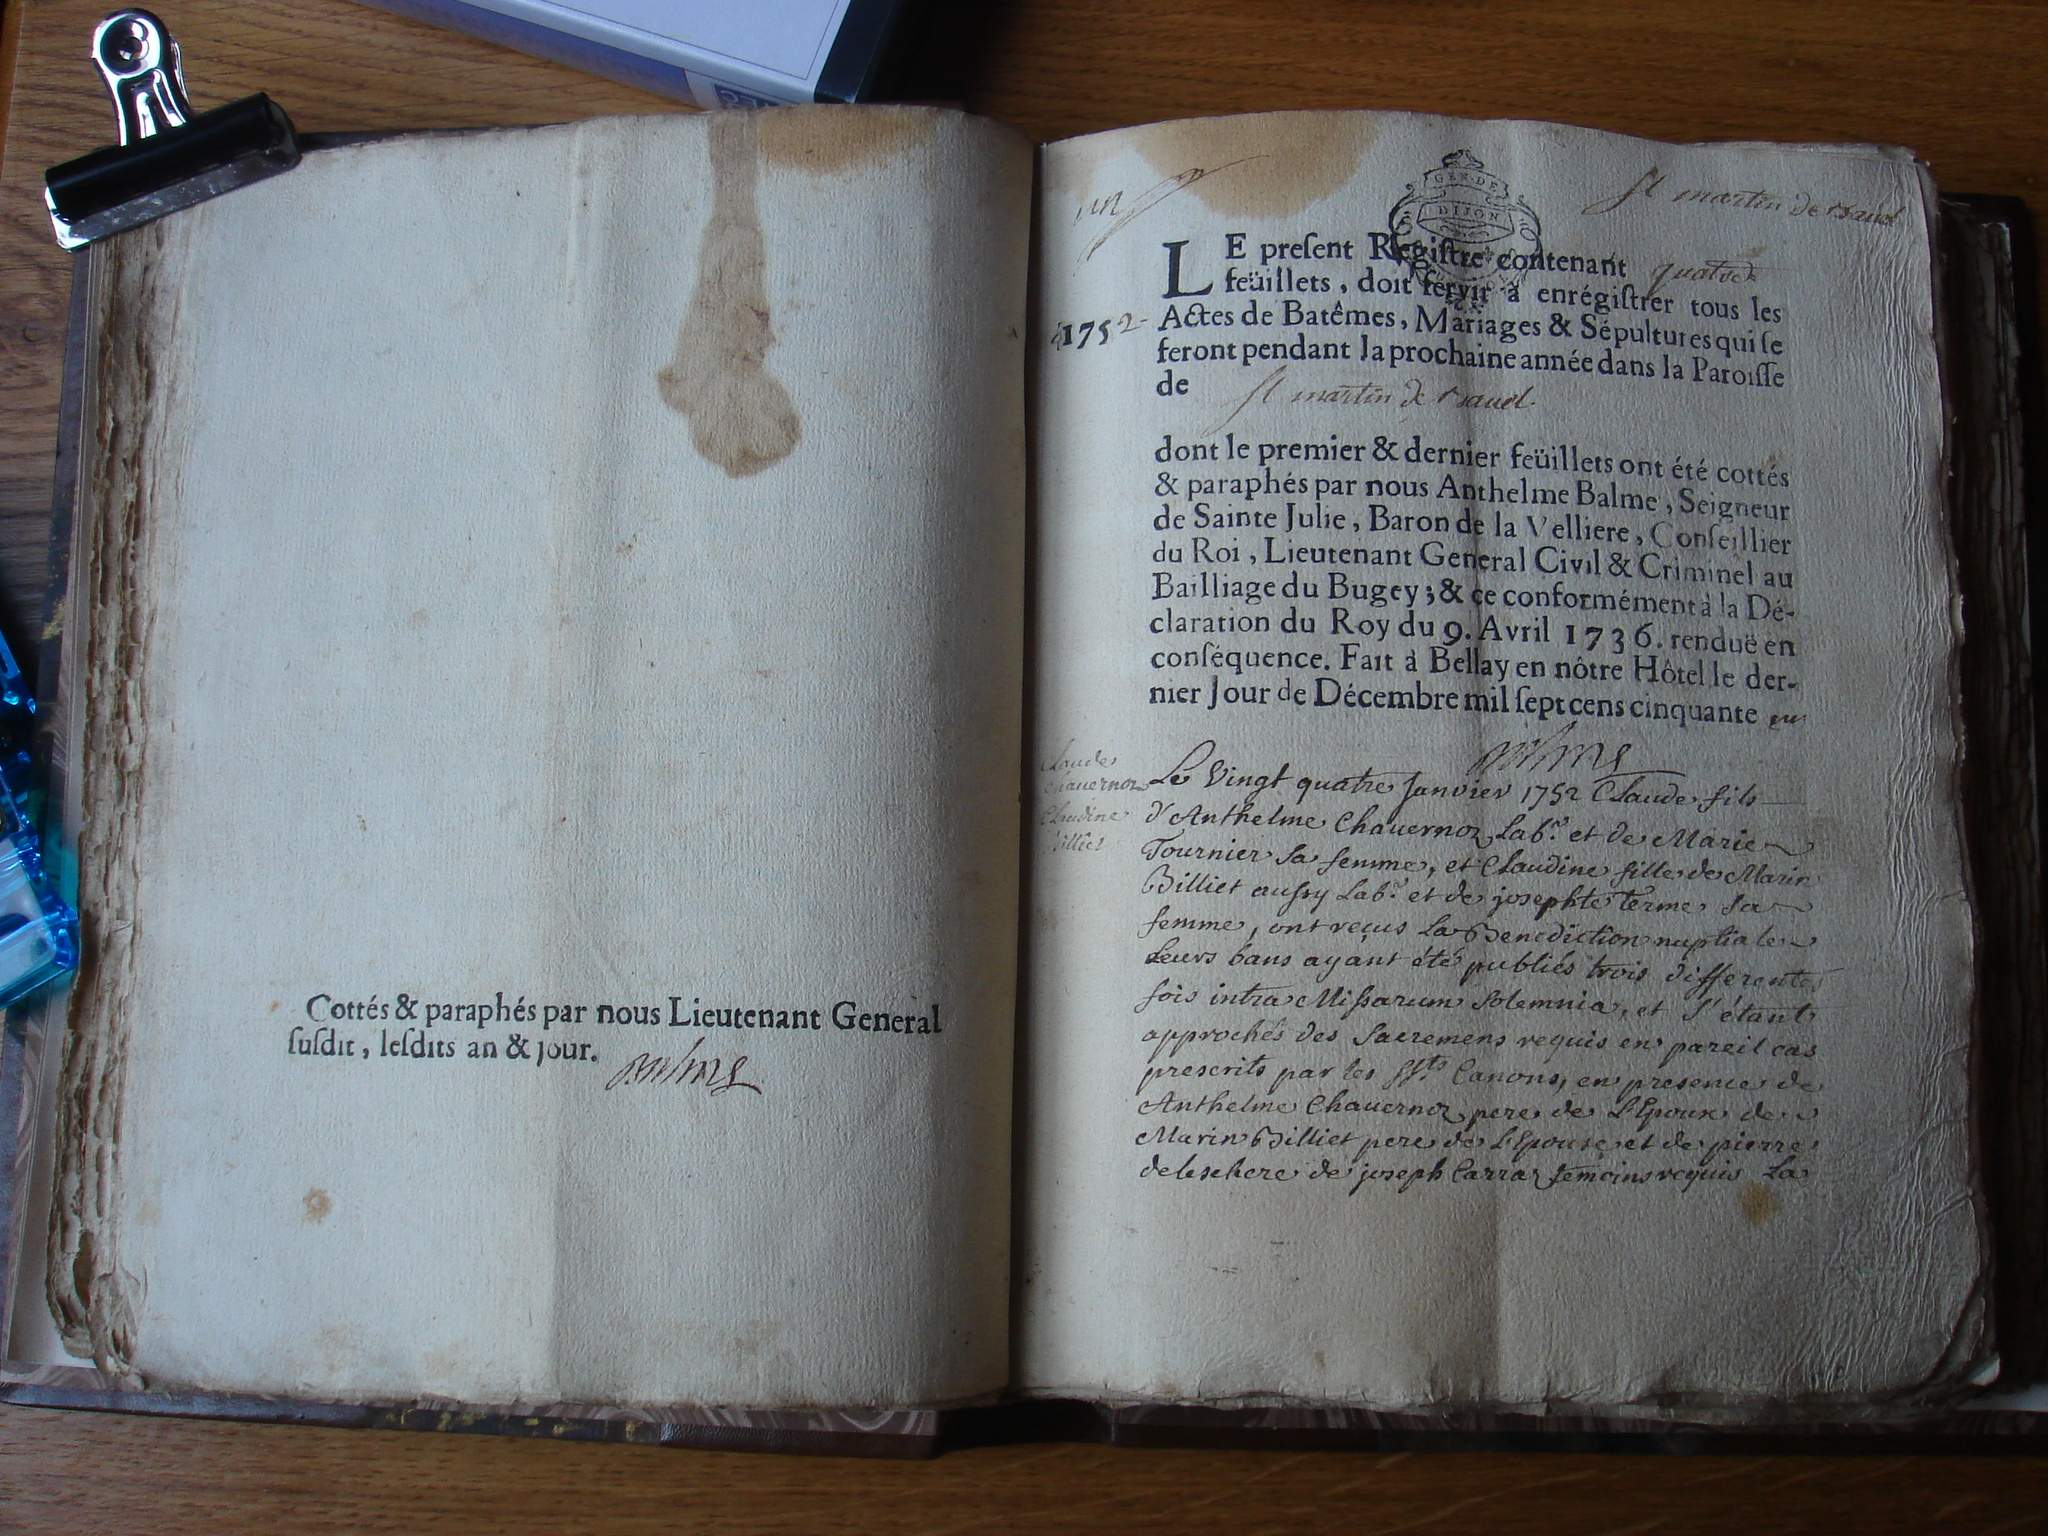 Cottés & paraphés par nous Lieutenant General
ſuſdit, leſdits an & jour.
un
GEN·DE
DIJON
St martin de
LE preſent Regiſtre contenant quatre
feüillets, doit ſervir à enrégiſtrer tous les
1752
Actes de Batêmes, Mariages & Sépultures qui ſe
feront pendant la prochaine année dans la Paroiſſe
de St martin de
dont le premier & dernier feüillets ont été cottés
& paraphés par nous Anthelme Balme, Seigneur
de Sainte Julie, Baron de la Velliere, Conſeillier
du Roi, Lieutenant General Civil & Criminel au
Bailliage du Bugey; & ce conformément à la Dé-
claration du Roy du 9. Avril 1736. renduë en
conſéquence. Fait à Bellay en nôtre Hôtel le der-
nier Jour de Décembre mil ſept cens cinquante un
Claude
Chavernoz
Claudine
Billiet
Le Vingt quatre Janvier 1752 Claude fils
d'Anthelme Chavernoz Lab.r et de Marie
Tournier sa femme, et Claudine fille de Marin
Billiet aussy Lab.r et de josephte Terme sa
femme, ont reçus La Benediction nuptiale
Leurs bans ayant été publiés trois differentes
fois intra Missarum Solemnia, et s'étant
approchés des Sacremens requis en pareil cas
prescrits par les SSts Canons, en presence de
Anthelme Chavernoz pere de L'Epoux de
Marin Billiet pere de L'Epouse et de pierre
deleschere de joseph Carraz temoins requis La